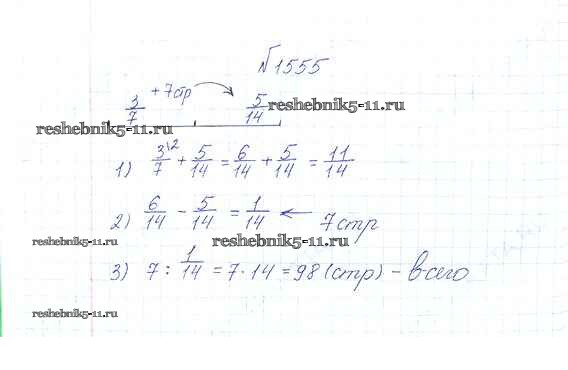 №1555
3/7 +7стр 5/14
reshebnik5-11.ru
reshebnik5-11.ru
1) 3\2/7 + 5/14 = 6/14 + 5/14 = 11/14
2) 6/14 - 5/14 = 1/14 ← 7стр
reshebnik5-11.ru reshebnik5-11.ru
3) 7 : 1/14 = 7·14 = 98 (стр) - всего
reshebnik5-11.ru